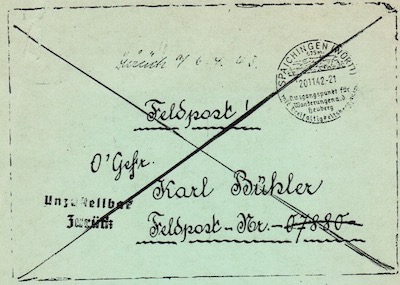 Zurück 6.4.43.
SPAICHINGEN (WÜRTT)
20.11.42-21
Ausgangspunkt für
Wanderungen a.d.
Heuberg
Dreifaltigkeitsberg
Feldpost!
O'Gefr.
Karl Bühler
Unzustellbar
Zurück
Feldpost-Nr.-07880-